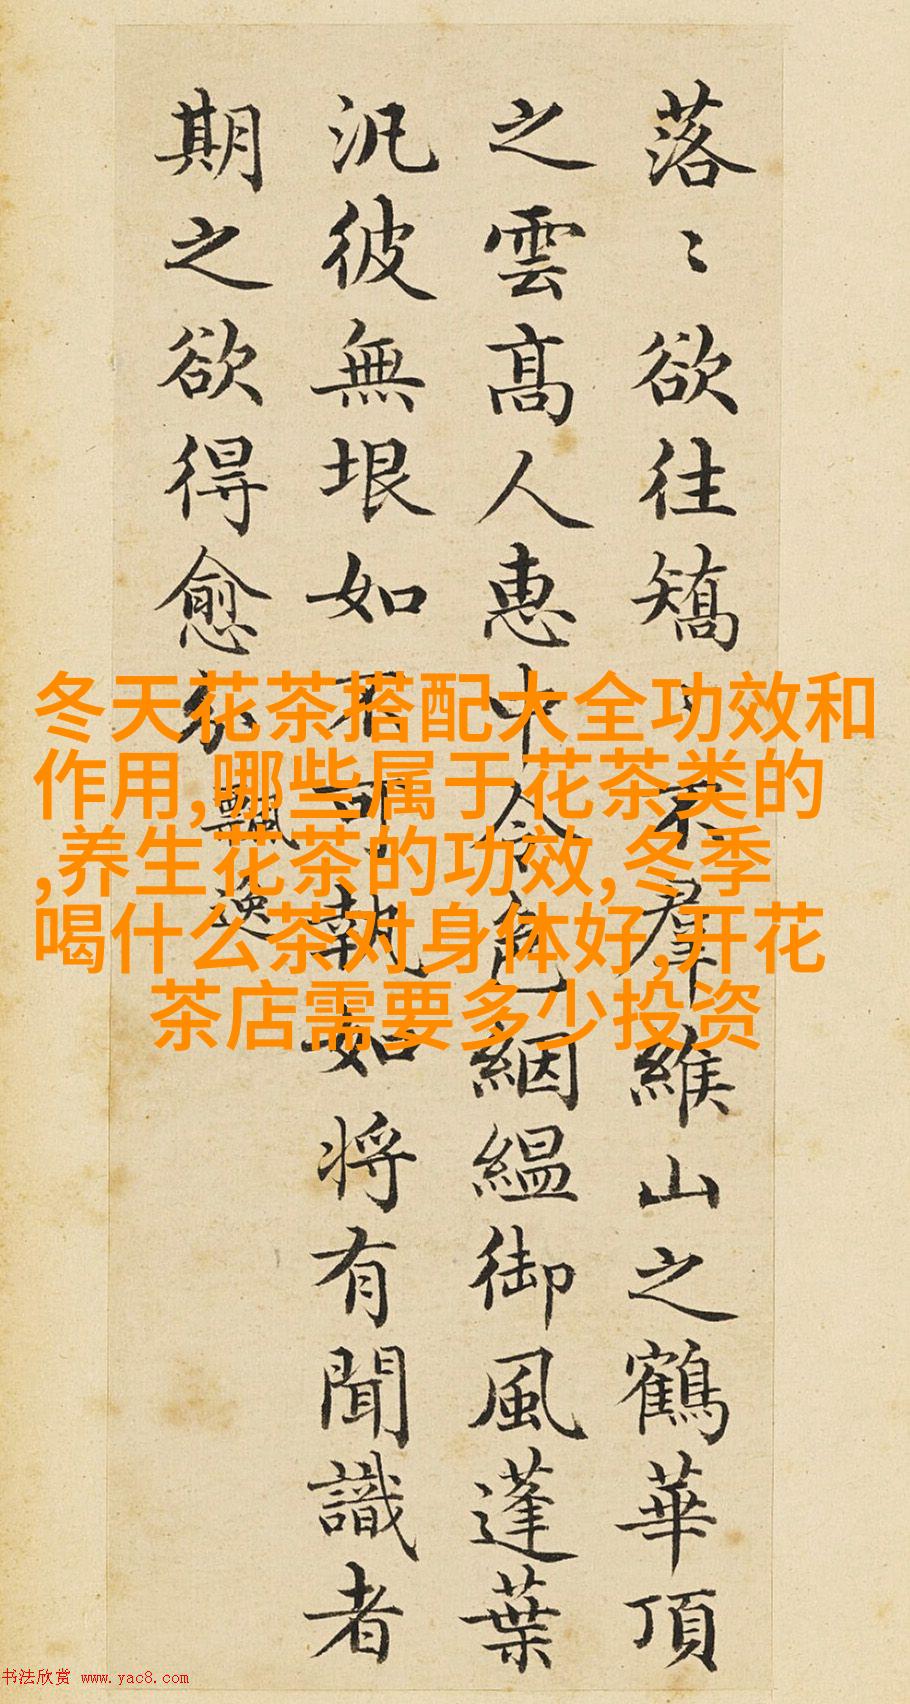 落〻欲往矯〻不羣緱山之鶴華頂
之雲髙人惠中令色絪縕御風蓬葉
汎彼無垠如不可執如将有聞識者
期之欲得愈分
飄逸
冬天花茶搭配大全功效和
作用,哪些属于花茶类的
,养生花茶的功效,冬季
喝什么茶对身体好,开花
茶店需要多少投资
书法欣赏 www.yac8.com